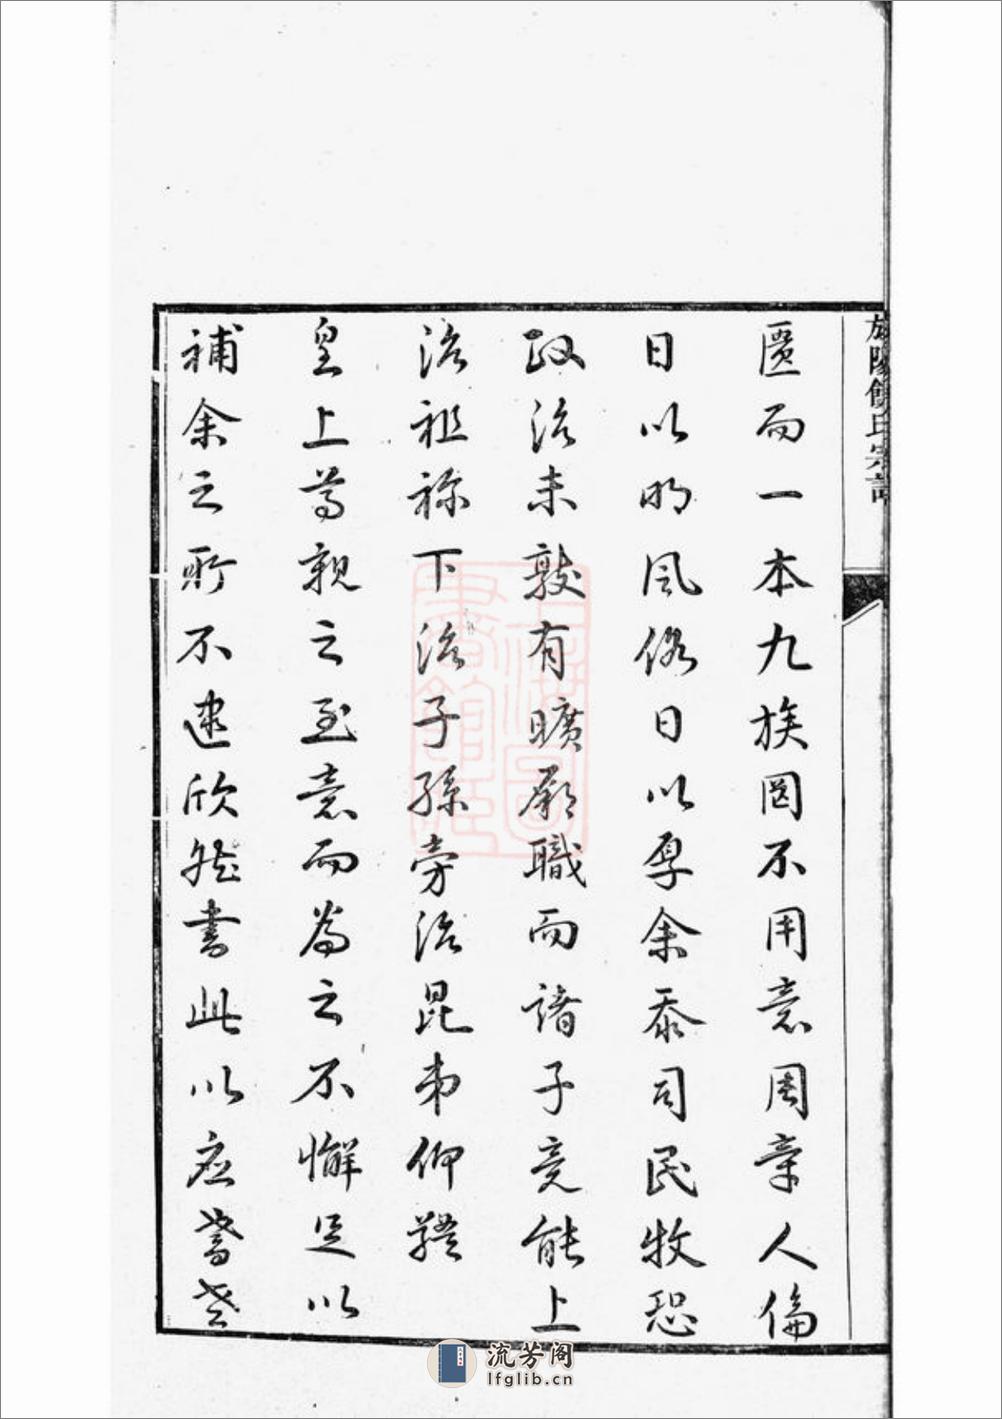 陽氏宗譜
匱而一本九族罔不用意周章人倫
日以明風俗日以厚余忝司民牧恐
政治未敦有曠厥職而諸子竟能上
治祖禰下治子孫旁治昆弟仰體
皇上尊親之至意而為之不懈足以
補余之所不逮欣然書此以應
上海圖書館藏
流芳阁
lfglib.cn